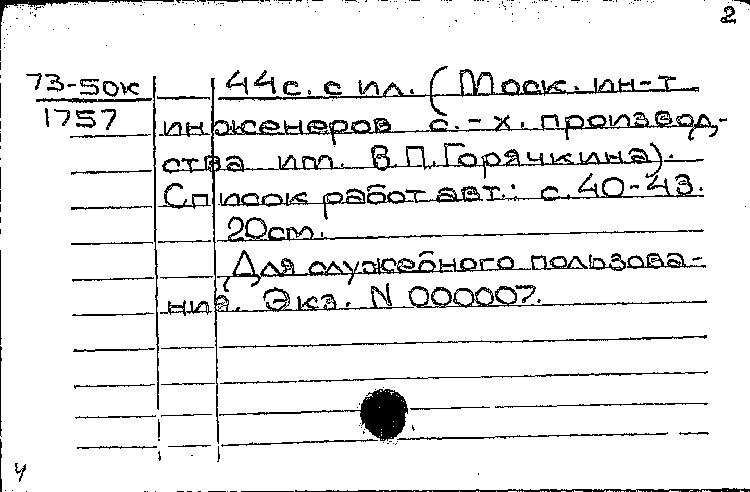 2
73-50к 44с. с ил. (Моск. ин-т
1757 инженеров с.-х. производ-
ства им. В.П.Горячкина).
Список работ авт.: с.40-43.
20см.
Для служебного пользова-
ния. Экз. N 000007.